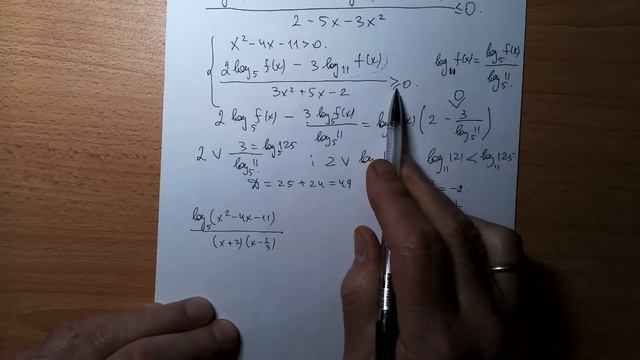 2 - 5x - 3x² ≤ 0.
x² - 4x - 11 > 0.
2 log₅ f(x) - 3 log₁₁ f(x) ≥ 0. log₁₁ f(x) = log₅ f(x)
3x² + 5x - 2 log₅ 11
2 log₅ f(x) - 3 log₅ f(x) / log₅ 11 = (2 - 3 / log₅ 11) 0
2 ∨ 3 = log₅ 125 / log₅ 11 ; 2 ∨ log₁₁ 121 < log₁₁ 125
D = 25 + 24 = 49 = -2.
log₅ (x² - 4x - 11)
(x + 2) (x - 1/3)